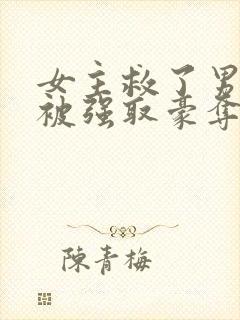 女主救了男
被强取豪夺
陳青梅